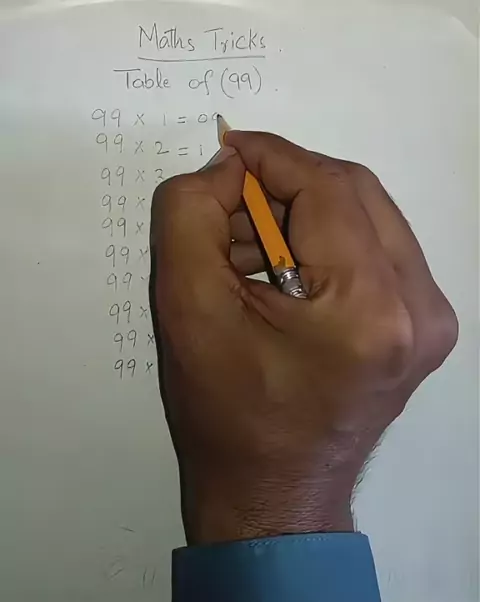 Maths Tricks.
Table of (99).
99 × 1 = 09
99 × 2 = 1
99 × 3
99 ×
99 ×
99 ×
99 ×
99 ×
99 ×
99 ×